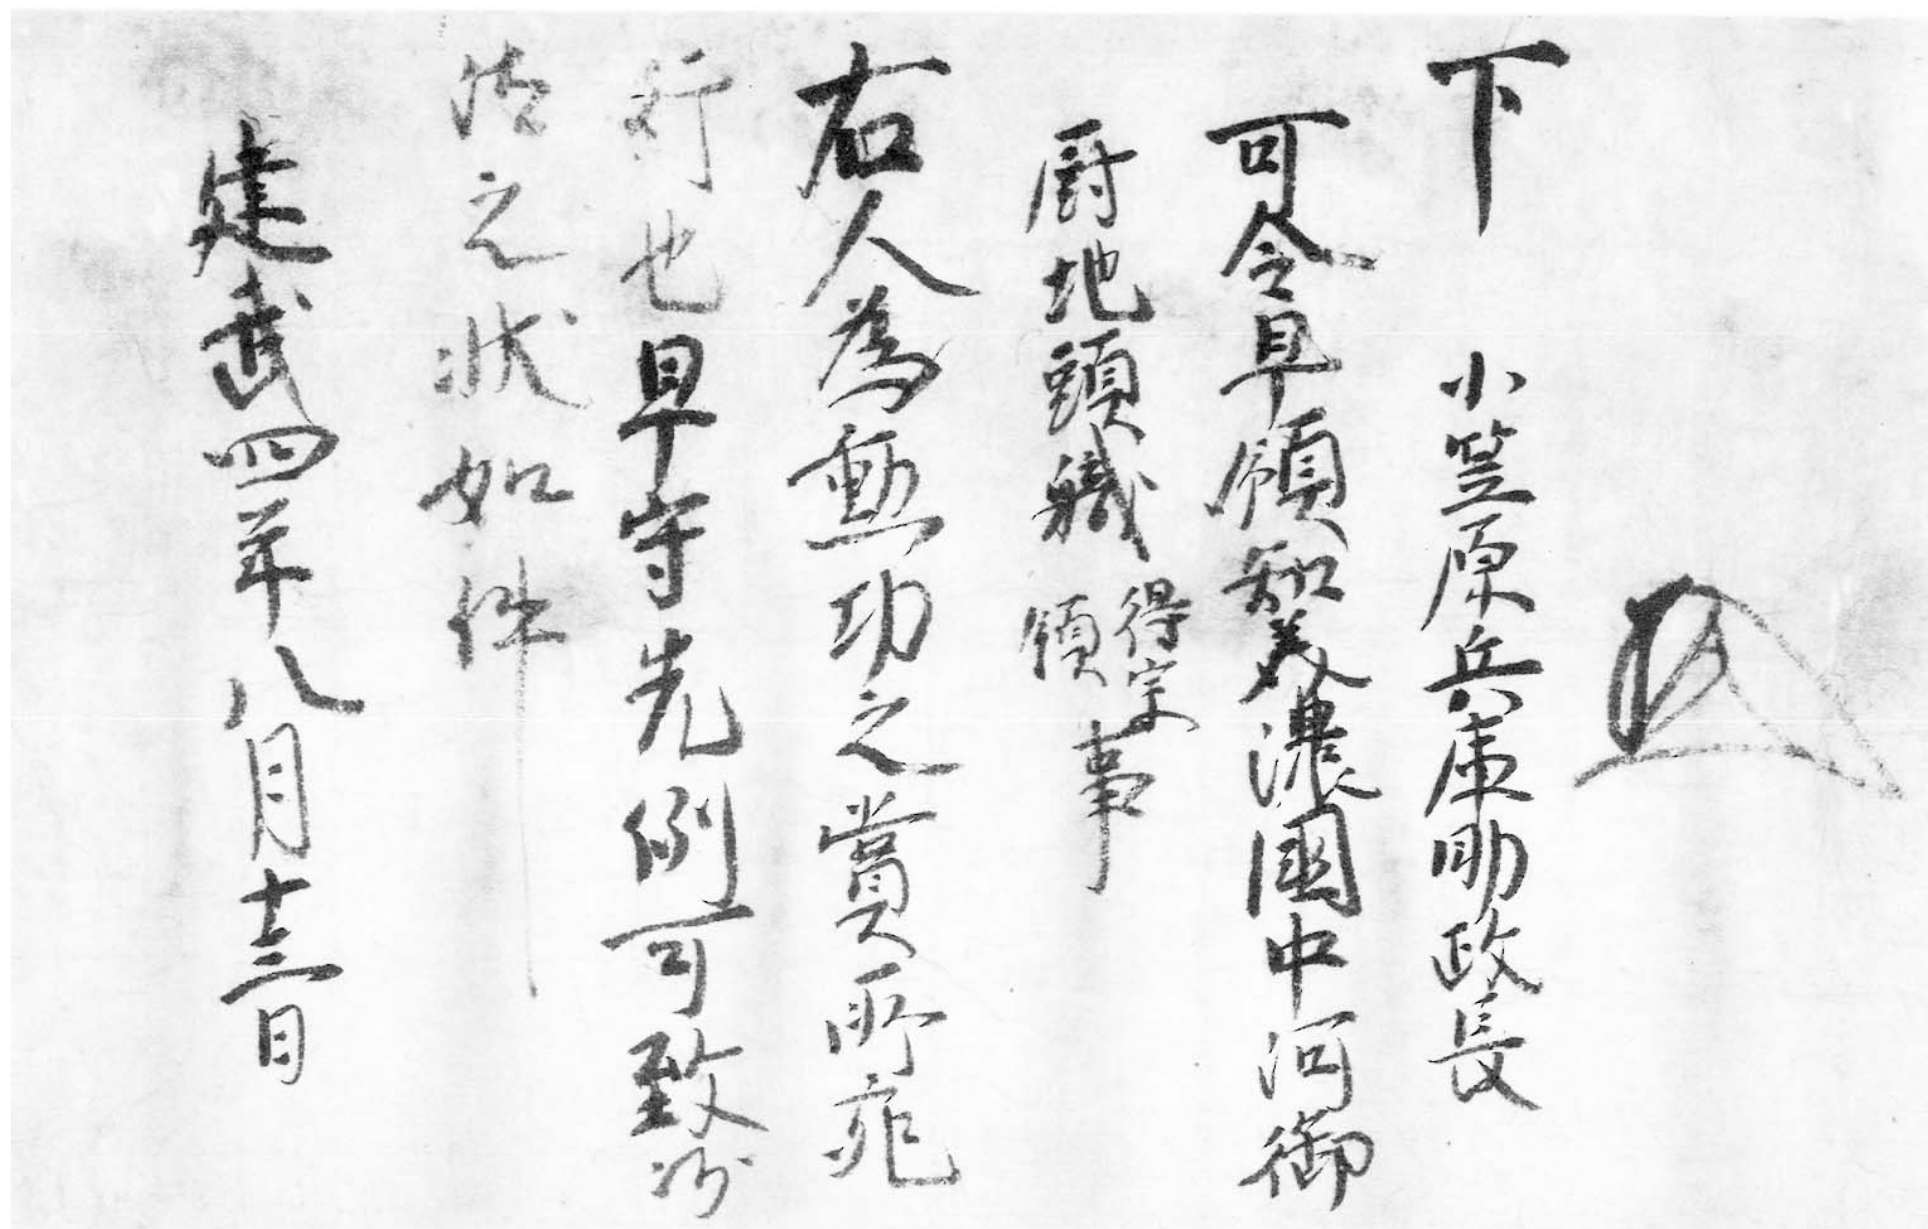 下　小笠原兵庫助政長
可令早領知美濃國中河御
厨地頭職得宗領事
右人為勲功之賞所宛
行也早守先例可致沙
汰之状如件
建武四年八月十三日